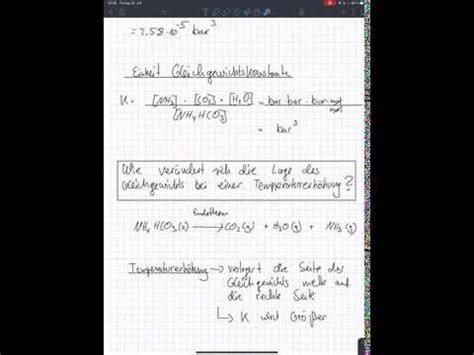 = 2.58 · 10⁻⁵ bar³
Einheit Gleichgewichtskonstante
K = [NH₃] · [CO₂] · [H₂O] / [NH₄HCO₃] = bar · bar · bar ·
= bar³
Wie verändert sich die Lage des
Gleichgewichts bei einer Temperaturerhöhung?
Endotherm
NH₄HCO₃(s) → CO₂(g) + H₂O(g) + NH₃(g)
Temperaturerhöhung → verlagert die Seite des
Gleichgewichts mehr auf
die rechte Seite
↳ K wird Größer